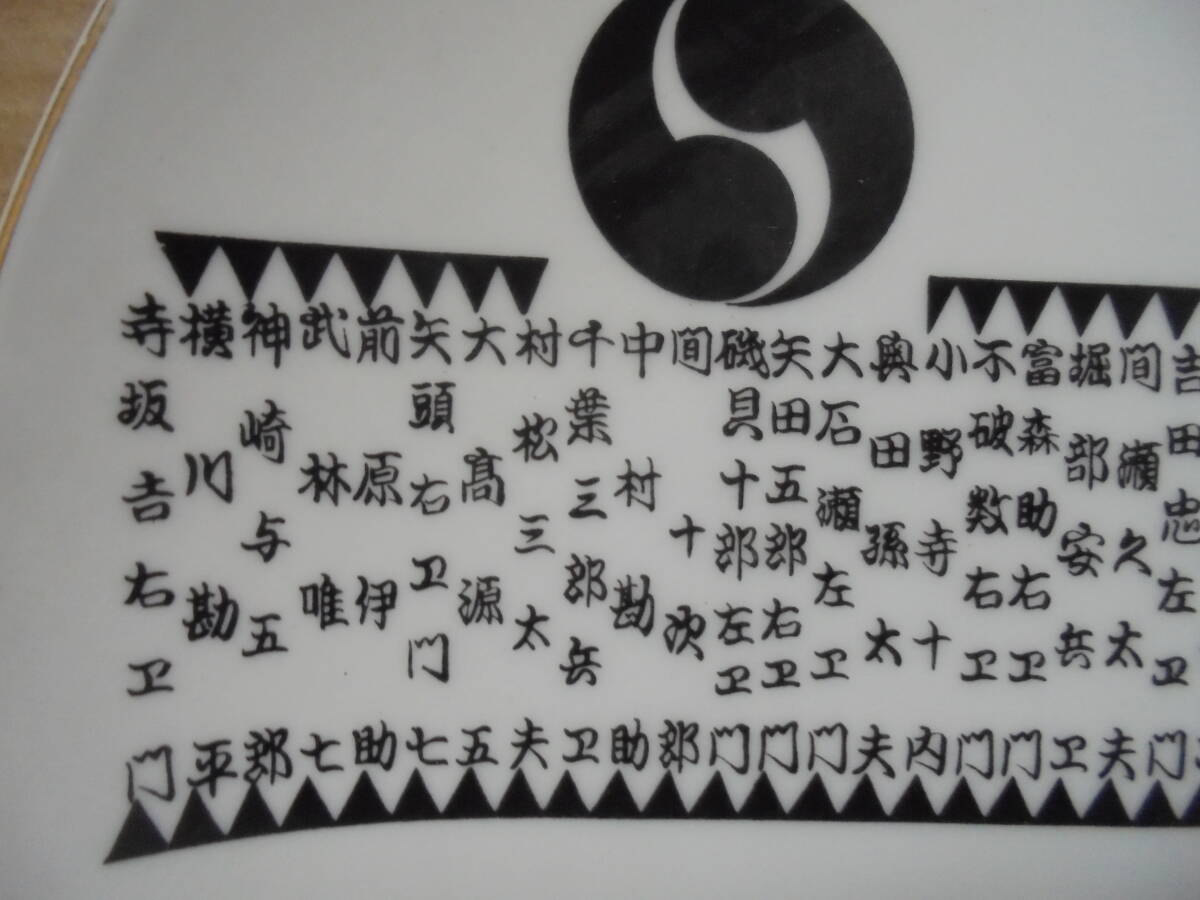 吉田忠左ヱ門
間瀬久太夫
堀部安兵ヱ
富森助右ヱ門
不破数右ヱ門
小野寺十内
奥田孫太夫
大石瀬左ヱ門
矢田五郎右ヱ門
磯貝十郎左ヱ門
間十次郎
中村勘助
千葉三郎兵ヱ
村松三太夫
大高源五
矢頭右ヱ門七
前原伊助
武林唯七
神崎与五郎
横川勘平
寺坂吉右ヱ門